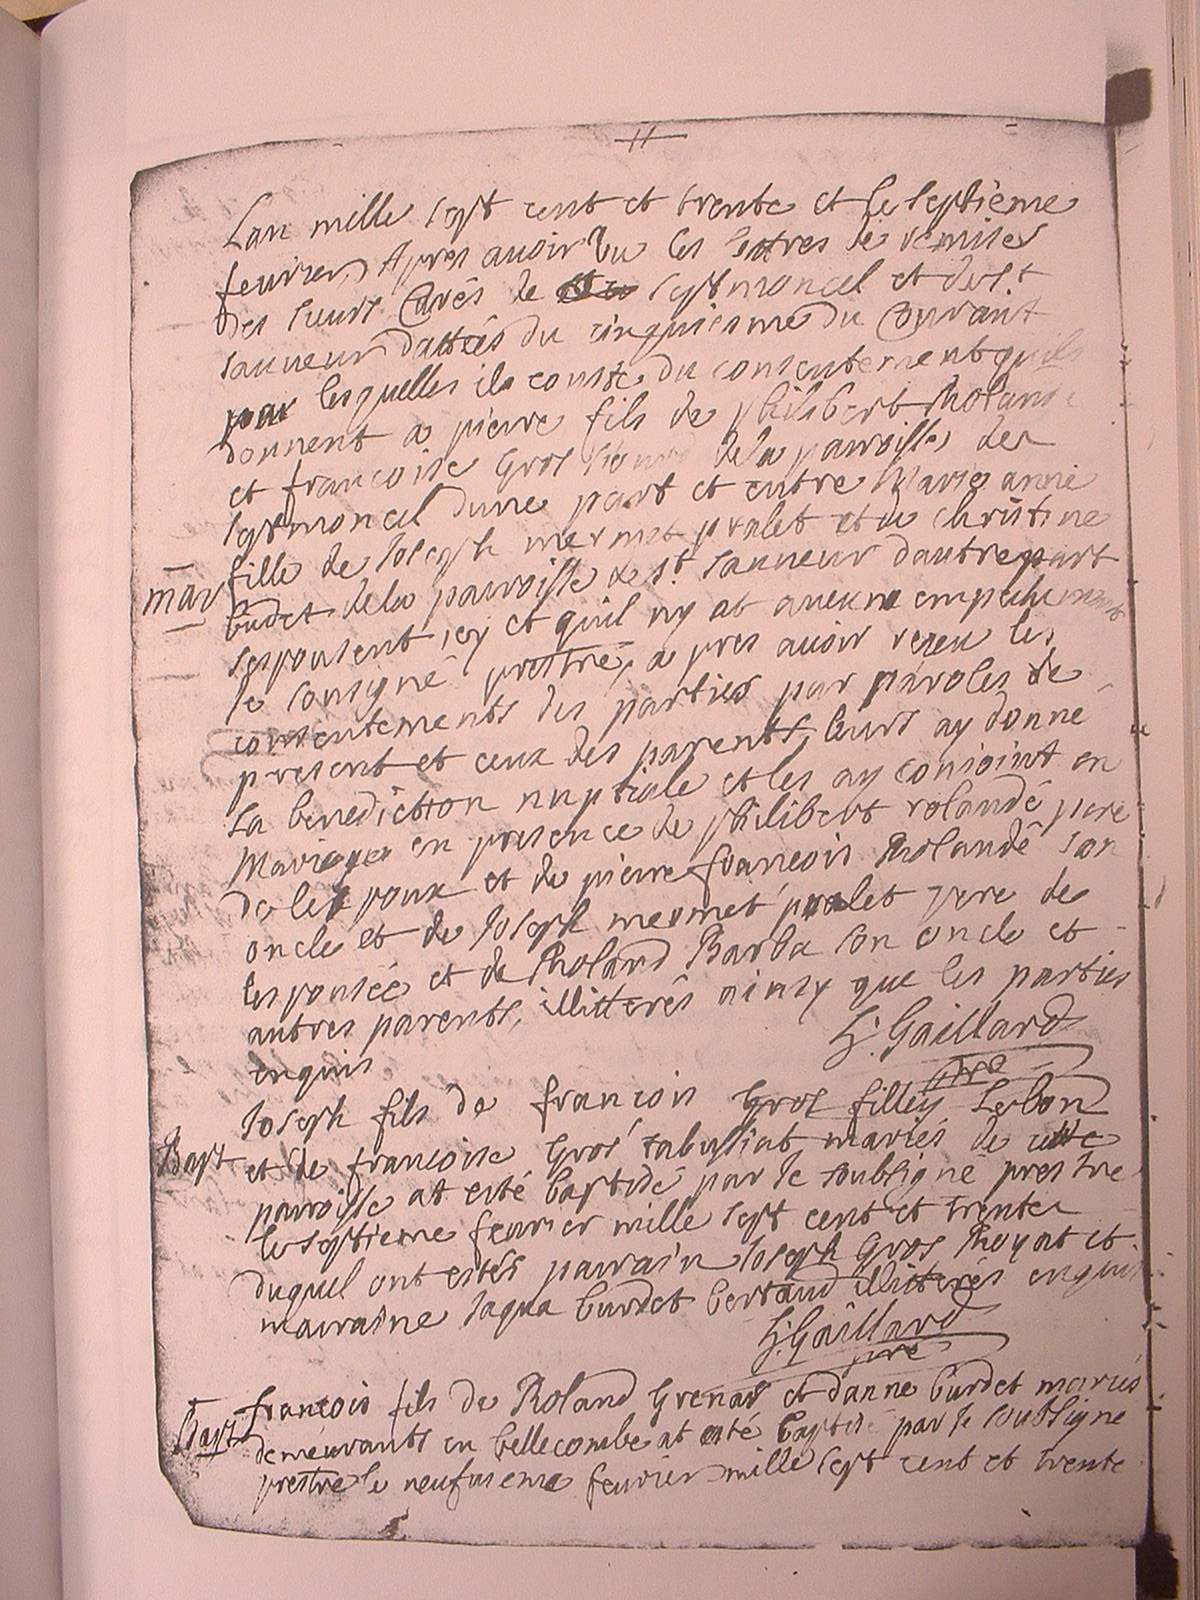 11
Lan mille sept cent et trente et le septieme
feurier, Apres auoir vu les lettres de remises
des sieurs Curés de septmoncel et de st
sauueur dattées du cinquiesme du Courant
par lesquelles il conste du consentement quils
donnent a pierre fils de philibert Rolandé
et francoise Gros de la paroisse de
septmoncel dune part et entre Marie anne
fille de Joseph mermet pralet et de christine
mar
budet de la paroisse de st. sauueur dautre part
sespousent icy et quil ny at aucun empechement
le sousigné prestre, a pres auoir receu les
consentements des parties par paroles de
present et ceux des parents, leurs ay donné
La benediction nuptiale et les ay conjoint en
Mariage en presence de philibert rolandé pere
de lepoux et de pierre francois Rolandé son
oncle et de Joseph mermet pralet pere de
lespousée et de Roland Barba son oncle et
autres parents, illitterés ainsy que les parties
enquis
h: Gaillard
pre
Joseph fils de francois Gros filley Lebon
Bapt
et de francoise Gros tabussiat mariés de cette
paroisse at esté baptisé par le soubsigné prestre
le septieme feurier mille sept cent et trente
duquel ont estés parrain Joseph Gros Royat et
marraine Jaqua burdet bertaud illitterés enquis
h: Gaillard
pre
Bapt
francois fils de Roland Grenar et danne burdet mariés
demeurants en bellecombe at esté baptisé par le soubsigne
prestre le neufuieme feurier mille sept cent et trente